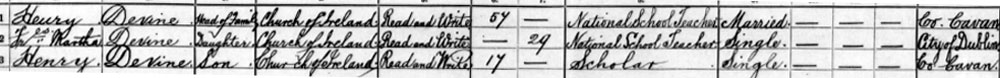 1 Henry Devine Head of Family Church of Ireland Read and Write 57 — National School Teacher Married — — — Co. Cavan
2 Martha Devine Daughter Church of Ireland Read and Write — 29 National School Teacher Single — — — City of Dublin
3 Henry Devine Son Church of Ireland Read and Write 17 — Scholar Single — — — Co. Cavan